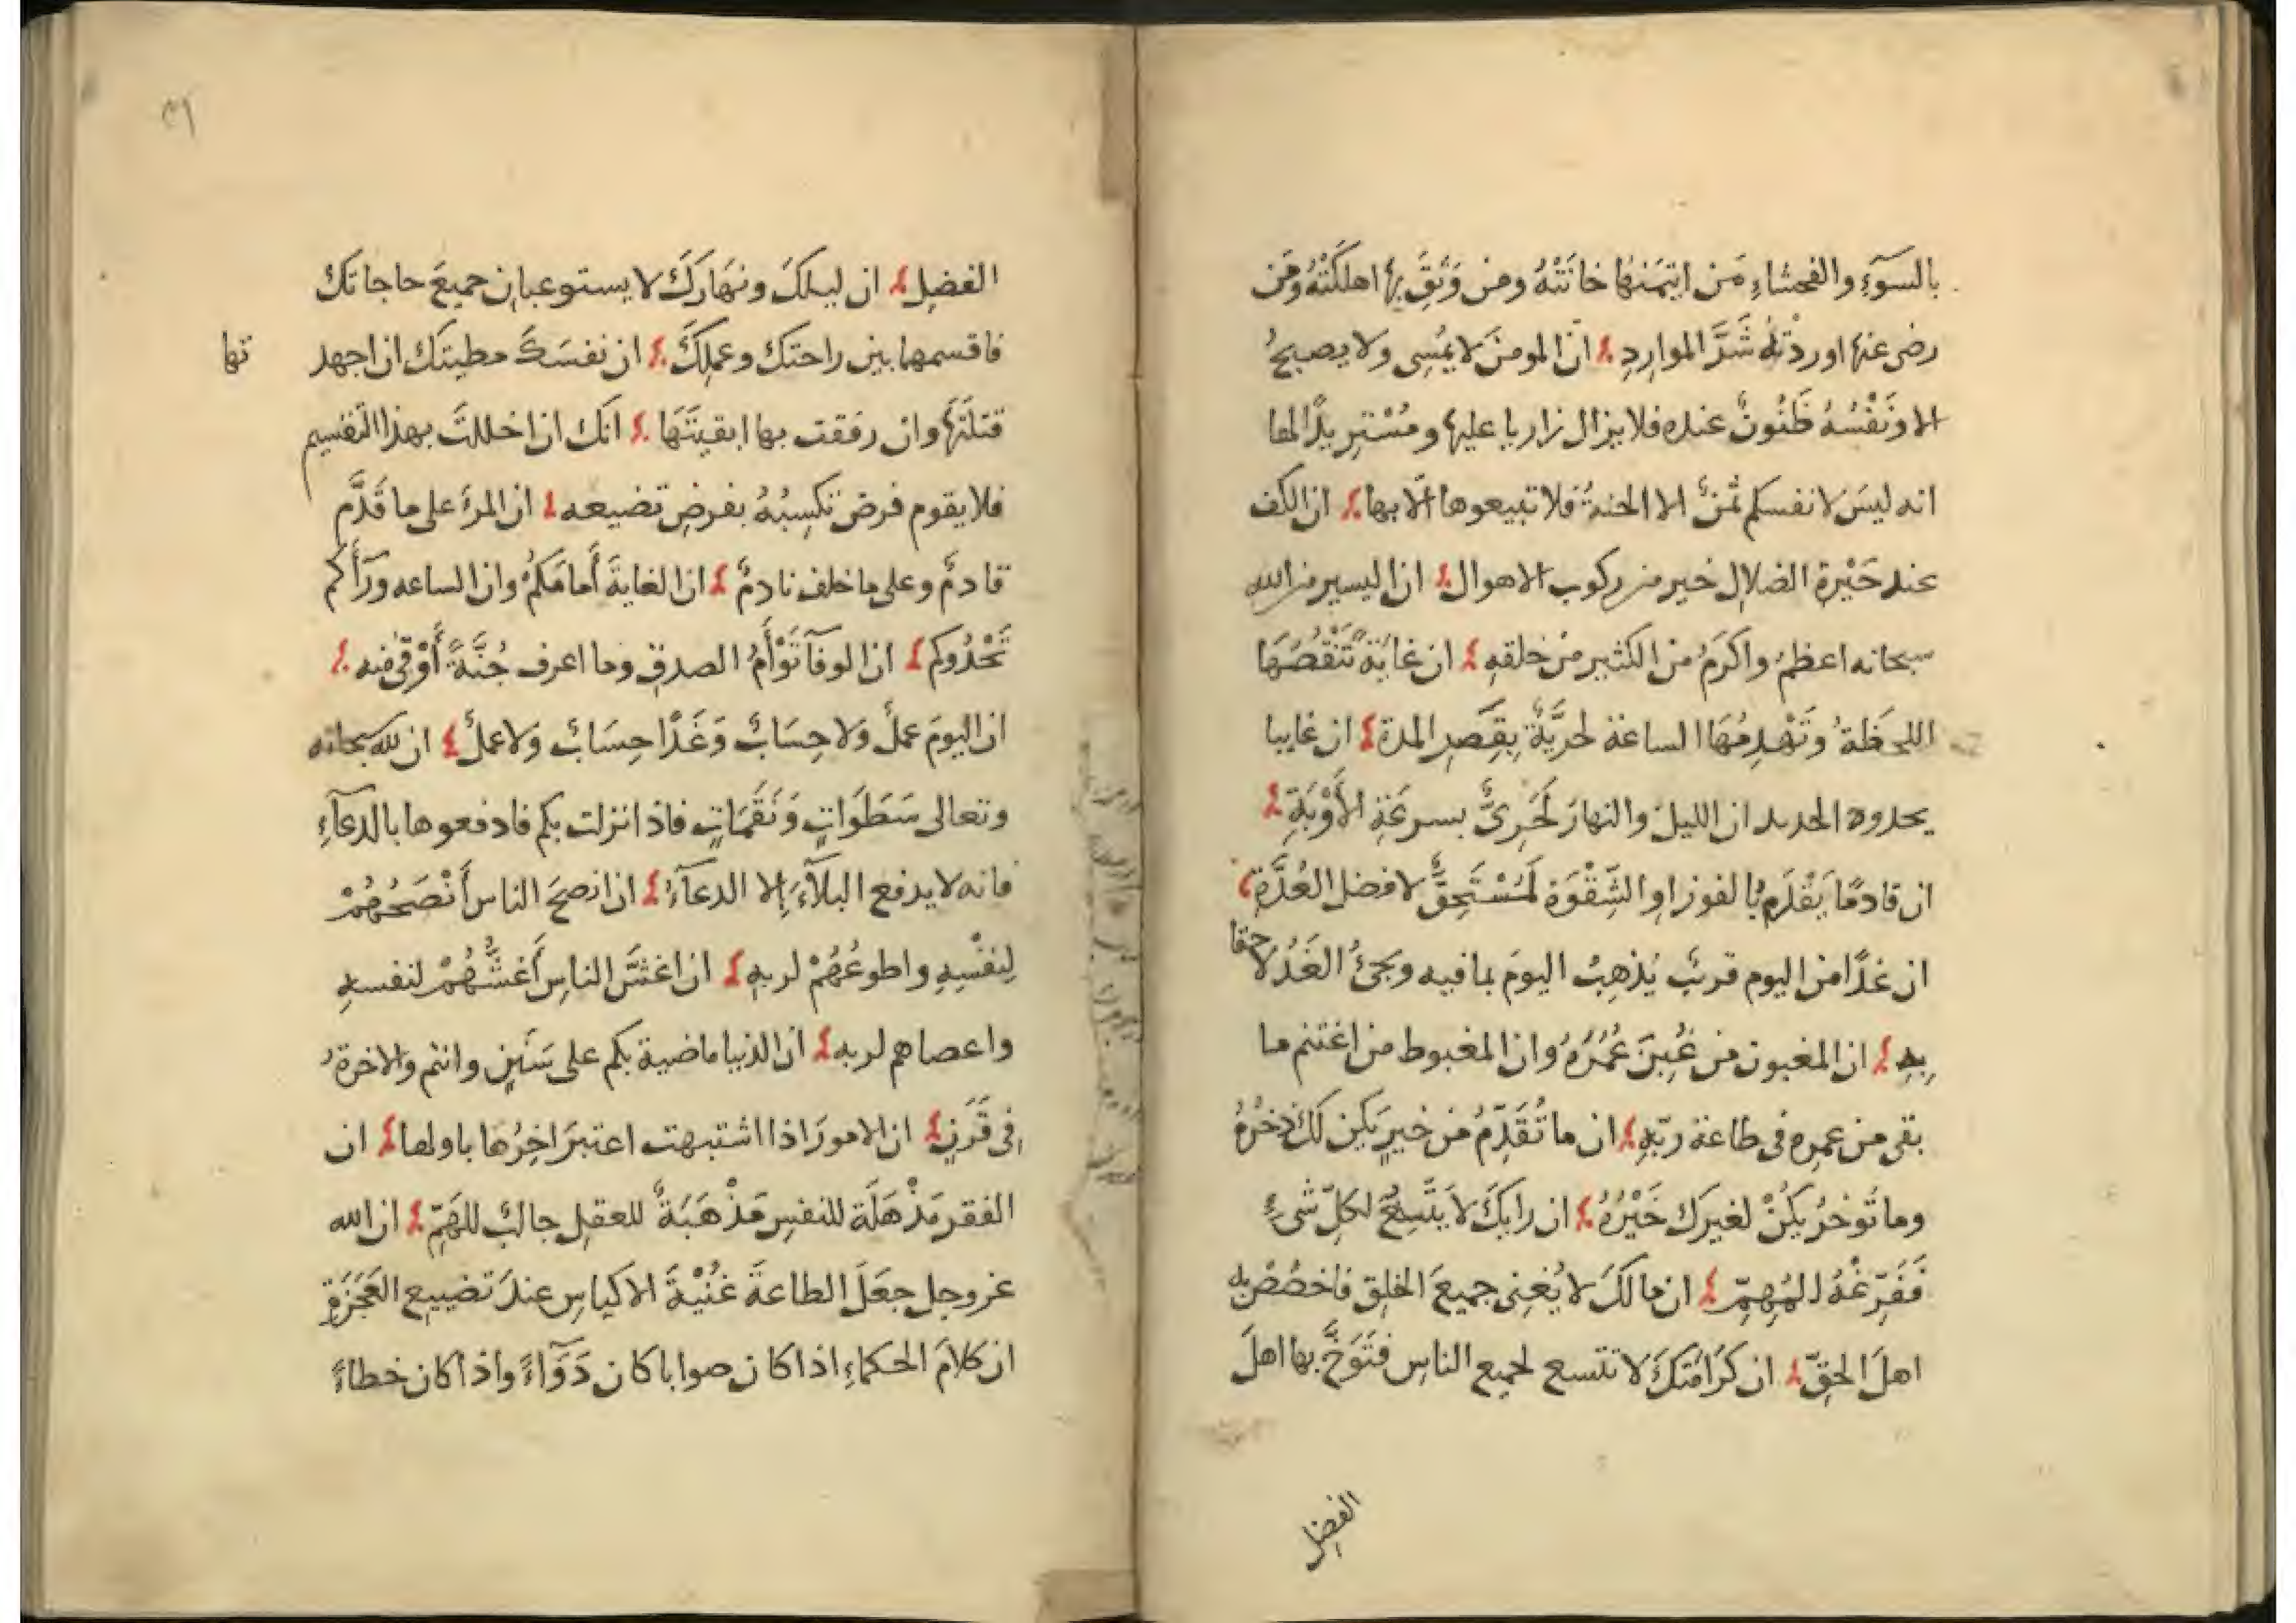 بالسوٓءِ والفحشاءِ فمن ايتمنها خانَتْهُ ومن وَثِقَ بها اهلكَتْهُ ومَن
رضى عنها اوردْتهُ شَرَّ المواردِ انّ المومنَ لا يمُسى ولا يصبحُ
الا ونَفْسُهُ ظَنُونٌ عنده فلا يزال زاريا عليها ومُسْتزِيدًا لها
انه ليسَ لانفسكم ثمنٌ الا الجنةُ فلا تبيعوها الّا بها ان الكف
عند حَيْرةِ الضلالِ خير من ركوب الاهوال ان اليسير من الله
سبحانه اعظمُ واكرَمُ من الكثير من خلقهِ ان غايَةً تَنْقُصُهَا
اللحظَةُ وتَهْدِمُهَا الساعة لحرِيَّةٌ بِقِصَرِ المدة ان غايبا
يحدوه الجديدان الليلَ والنهارَ لَحَرِىٌّ بسرعَةِ الأَوْبَةِ
ان قادمًا يَقْدَمُ بالفوز او الشِّقْوَة لمُسْتَحِقٌّ لافضل العُدَّةِ
ان غدًا من اليوم قريبٌ يُذهِبُ اليومَ بما فيه ويجئُ الغَدُ لاحقا
بِهِ ان المغبون من غُبِنَ عُمُرَهُ وان المغبوط من اغتنم ما
بقى من عمره فى طاعة ربّهِ ان ما تُقَدِّمُ من خيرٍ يَكن لَكَ ذخرُهُ
وما تُوخرُ يكُنْ لغيرك خَيْرُهُ ان رايكَ لا يَتَّسِعُ لكلّ شىءٍ
فَفَرِّغْهُ للمُهِمِّ ان مالكَ لا يُغنِى جميعَ الخلِق فاخصُصْ به
اهلَ الحقّ ان كَرَامَتَكَ لا تتسع لجميع الناسِ فتَوَخَّ بها اهلَ
الفضل
٣١
الفضلِ ان ليلكَ ونهَارَكَ لا يستوعبان جميعَ حاجاتك
فاقسمها بين راحتك وعملِكَ ان نفسَكَ مطيتك ان اجهد
تها
قتلتَها وان رفقت بها ابقيتَهَا انك ان اخللتَ بهذا التقسيم
فلا يقوم فرض تكسِبُهُ بفرضِ تضيعه ان المرءَ على ما قَدَّم
قادمٌ وعلى ما خلف نادمٌ ان الغايةَ أَمامَكُم وان الساعه ورآَأَكم
تَحْدُوكم ان الوفآ تَوْأَمُ الصدقِ وما اعرف جُنَّةً أَوْقٰى منه
ان اليومَ عملٌ وَلا حِسَابٌ وَغَدًا حِسَابٌ وَلا عملٌ ان لله سبحانه
وتعالى سَطَوَاتٍ وَنَقَمَاتٍ فاذا نزلت بكم فادفعوها بالدعآءِ
فانه لا يدفع البلآءَ إلا الدعآءُ ان انصحَ الناسِ أَنْصَحُهُمْ
لِنفْسِهِ واطوعُهُمْ لربهِ ان اغشَّ الناسِ أَغشُّهُمْ لنفسهِ
واعصاهم لربه ان الدنيا ماضية بكم على سَنَنٍ وانتم والاخرةُ
فى قَرَنٍ ان الامورَ اذا اشتبهت اعتبرَ اخِرُها باولها ان
الفقر مَذْهَلَة للنفسِ مَذْهَبَةٌ للعقلِ جالبٌ للهَمِّ ان الله
عزوجل جعَلَ الطاعةَ غُنْيَةَ الاكياسِ عندَ تضييع العَجَزَةِ
ان كلامَ الحكماءِ اذا كان صوابا كان دَوَآءً واذا كان خطاءً